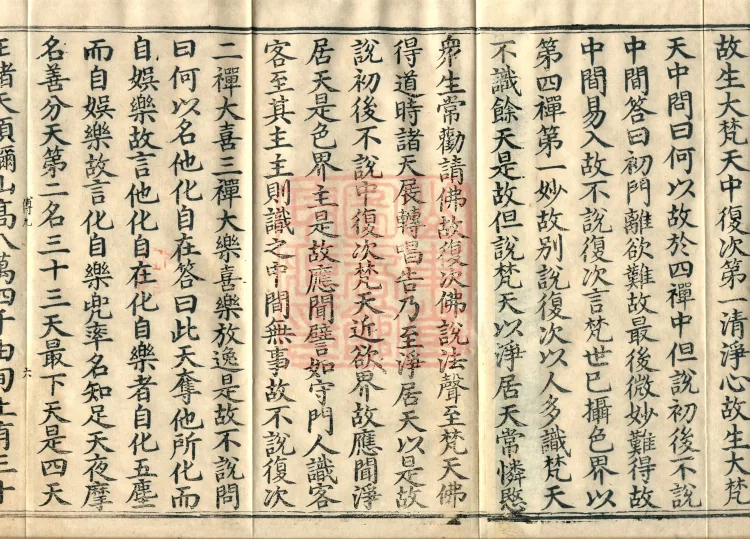 故生大梵天中復次第一清淨心故生大梵
天中問曰何以故於四禪中但說初後不說
中間答曰初門離欲難故最後微妙難得故
中間易入故不說復次言梵世已攝色界以
第四禪第一妙故別說復次以人多識梵天
不識餘天是故但說梵天以淨居天常憐愍
衆生常勸請佛故復次佛說法聲至梵天佛
得道時諸天展轉唱告乃至淨居天以是故
說初後不說中復次梵天近欲界故應聞淨
居天是色界主是故應聞譬如守門人識客
客至其主主則識之中間無事故不說復次
二禪大喜三禪大樂喜樂放逸是故不說問
曰何以名他化自在答曰此天奪他所化而
自娛樂故言他化自在化自樂者自化五塵
而自娛樂故言化自樂兜率名知足天夜摩
名善分天第二名三十三天最下天是四天
傅九
六
王諸天須彌山高八萬四千由旬上有三十